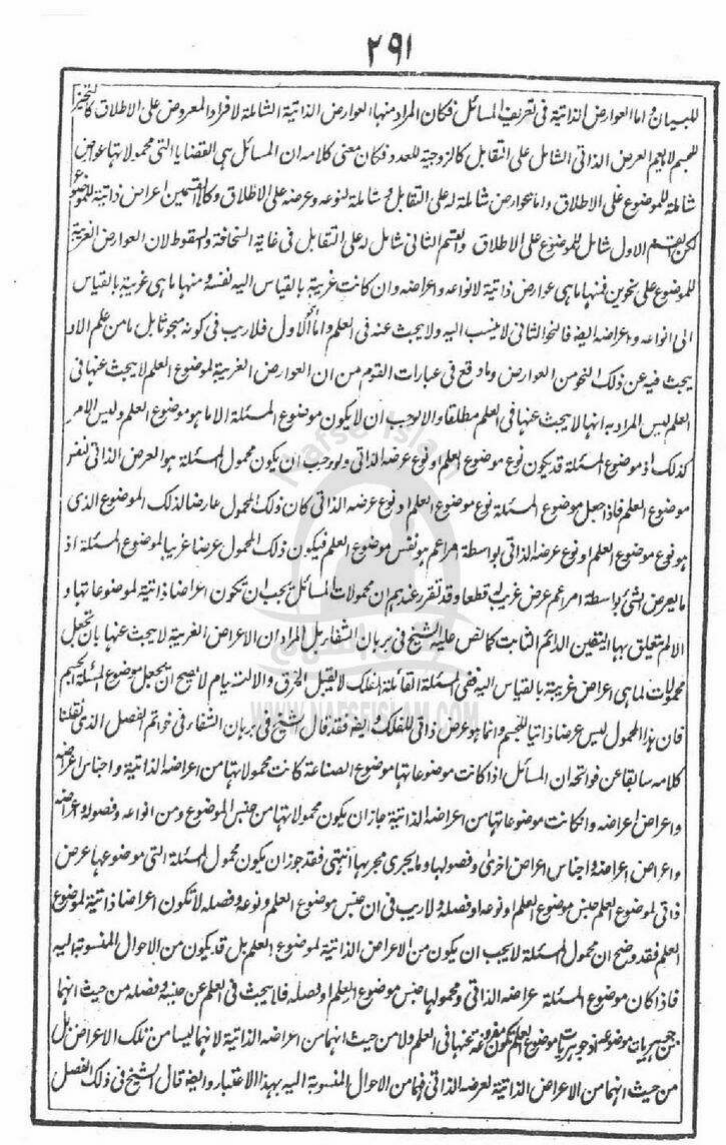 ۲۹۱
للبيان واما العوارض الذاتية فى تعريف المسائل فكان المراد منها العوارض الذاتية الشاملة لافراد المعروض على الاطلاق كالتحيز
للجسم لا يعم العرض الذاتى الشامل على التقابل كالزوجية للعدد فكان معنى كلامه ان المسائل هى القضايا التى محمولاتها عوارض
شاملة للموضوع على الاطلاق واما عوارض شاملة له على التقابل وشاملة لنوعه وعرضه على الاطلاق وكلا القسمين اعراض ذاتية للموضوع
لكن القسم الاول شامل للموضوع على الاطلاق والقسم الثانى شامل له على التقابل فى غاية السخافة والسقوط لان العوارض الغريبة
للموضوع على نحوين فمنها ما هى عوارض ذاتية لانواعه واعراضه وان كانت غريبة بالقياس اليه نفسه ومنها ما هى غريبة بالقياس
الى انواعه واعراضه ايضا فالنحو الثانى لا ينسب اليه ولا يبحث عنه فى العلم واما الاول فلا ريب فى كونه مبحوثا بل ما من علم الا و
يبحث فيه عن ذلك النحو من العوارض وما وقع فى عبارات القوم من ان العوارض الغريبة لموضوع العلم لا يبحث عنها فى
العلم ليس المراد به انها لا يبحث عنها فى العلم مطلقا والا لوجب ان لا يكون موضوع المسئلة الا ما هو موضوع العلم وليس الامر
كذلك اذ موضوع المسئلة قد يكون نوع موضوع العلم او نوع عرضه الذاتى ولو وجب ان يكون محمول المسئلة هو العرض الذاتى لنفس
موضوع العلم فاذا جعل موضوع المسئلة نوع موضوع العلم او نوع عرضه الذاتى كان ذلك المحمول عارضا لذلك الموضوع الذى
هو نوع موضوع العلم او نوع عرضه الذاتى بواسطة امر اعم هو نفس موضوع العلم فيكون ذلك المحمول عرضا غريبا لموضوع المسئلة اذ
ما يعرض الشئ بواسطة امر اعم عرض غريب له قطعا وقد تقرر عندهم ان محمولات المسائل يجب ان تكون اعراضا ذاتية لموضوعاتها و
الا لم يتعلق بها اليقين الدائم الثابت كما نص عليه الشيخ فى برهان الشفاء بل المراد ان الاعراض الغريبة لا يبحث عنها بان تجعل
محمولات لما هى اعراض غريبة بالقياس اليه ففى المسئلة القائلة الفلك لا يقبل الخرق والالتيام لا يصح ان يجعل موضوع المسئلة الجسم
فان هذا المحمول ليس عرضا ذاتيا للجسم وانما هو عرض ذاتى للفلك وايضا فقد قال الشيخ فى برهان الشفاء فى خواتم الفصل الذى نقلنا
كلامه سابقا عن فواتحه ان المسائل اذا كانت موضوعاتها موضوع الصناعة كانت محمولاتها من اعراضه الذاتية واجناس اعراضه
واعراض اعراضه وان كانت موضوعاتها من اعراضه الذاتية جاز ان يكون محمولاتها من جنس الموضوع ومن انواعه وفصوله واعراضه
واعراض اعراضه واجناس اعراض اخرى وفصولها وما يجرى مجريها انتهى فقد جوز ان يكون محمول المسئلة التى موضوعها عرض
ذاتى لموضوع العلم جنس موضوع العلم او نوعه او فصله ولا ريب فى ان جنس موضوع العلم ونوعه وفصله لا تكون اعراضا ذاتية لموضوع
العلم فقد وضح ان محمول المسئلة لا يجب ان يكون من الاعراض الذاتية لموضوع العلم بل قد يكون من الاحوال المنسوبة اليه
فاذا كان موضوع المسئلة عرضه الذاتى ومحمولها جنس موضوع العلم او فصله فلا يبحث فى العلم عن جنسه وفصله من حيث انهما
من جوهريات موضوعه اذ جوهريات موضوع العلم تكون مفروغة عنها فى العلم ولا من حيث انهما من اعراضه الذاتية لانهما ليسا من تلك الاعراض بل
من حيث انهما من الاعراض الذاتية لعرضه الذاتى فهما من الاحوال المنسوبة اليه بهذا الاعتبار وايضا قال الشيخ فى ذلك الفصل
Nafse Islam
WWW.NAFSEISLAM.COM